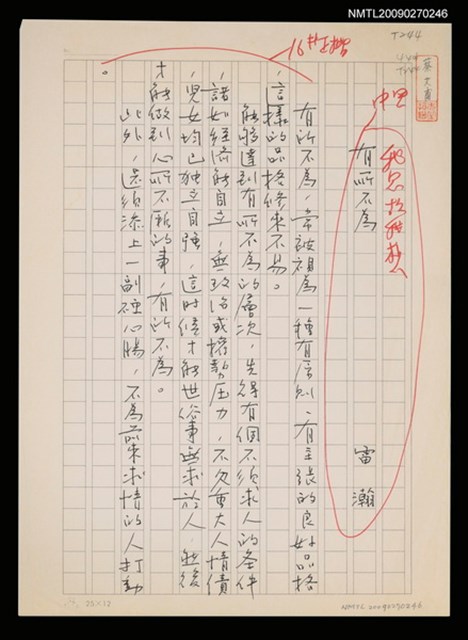 NMTL20090270246
T244
有所不為
雷瀚
有所不為，常被視為一種有原則、有主張的良好品格
，這樣的品格修來不易。
能夠達到有所不為的層次，先得有個不須求人的条件
，諸如經濟能自立，無政治或權勢压力，不欠重大人情債
，兒女均已独立自強，這時候才能世俗事無求於人，然後
才能做到心所不願的事，有所不為。
此外，還須添上一副硬心腸，不為前來求情的人打動
。
25×12
NMTL20090270246